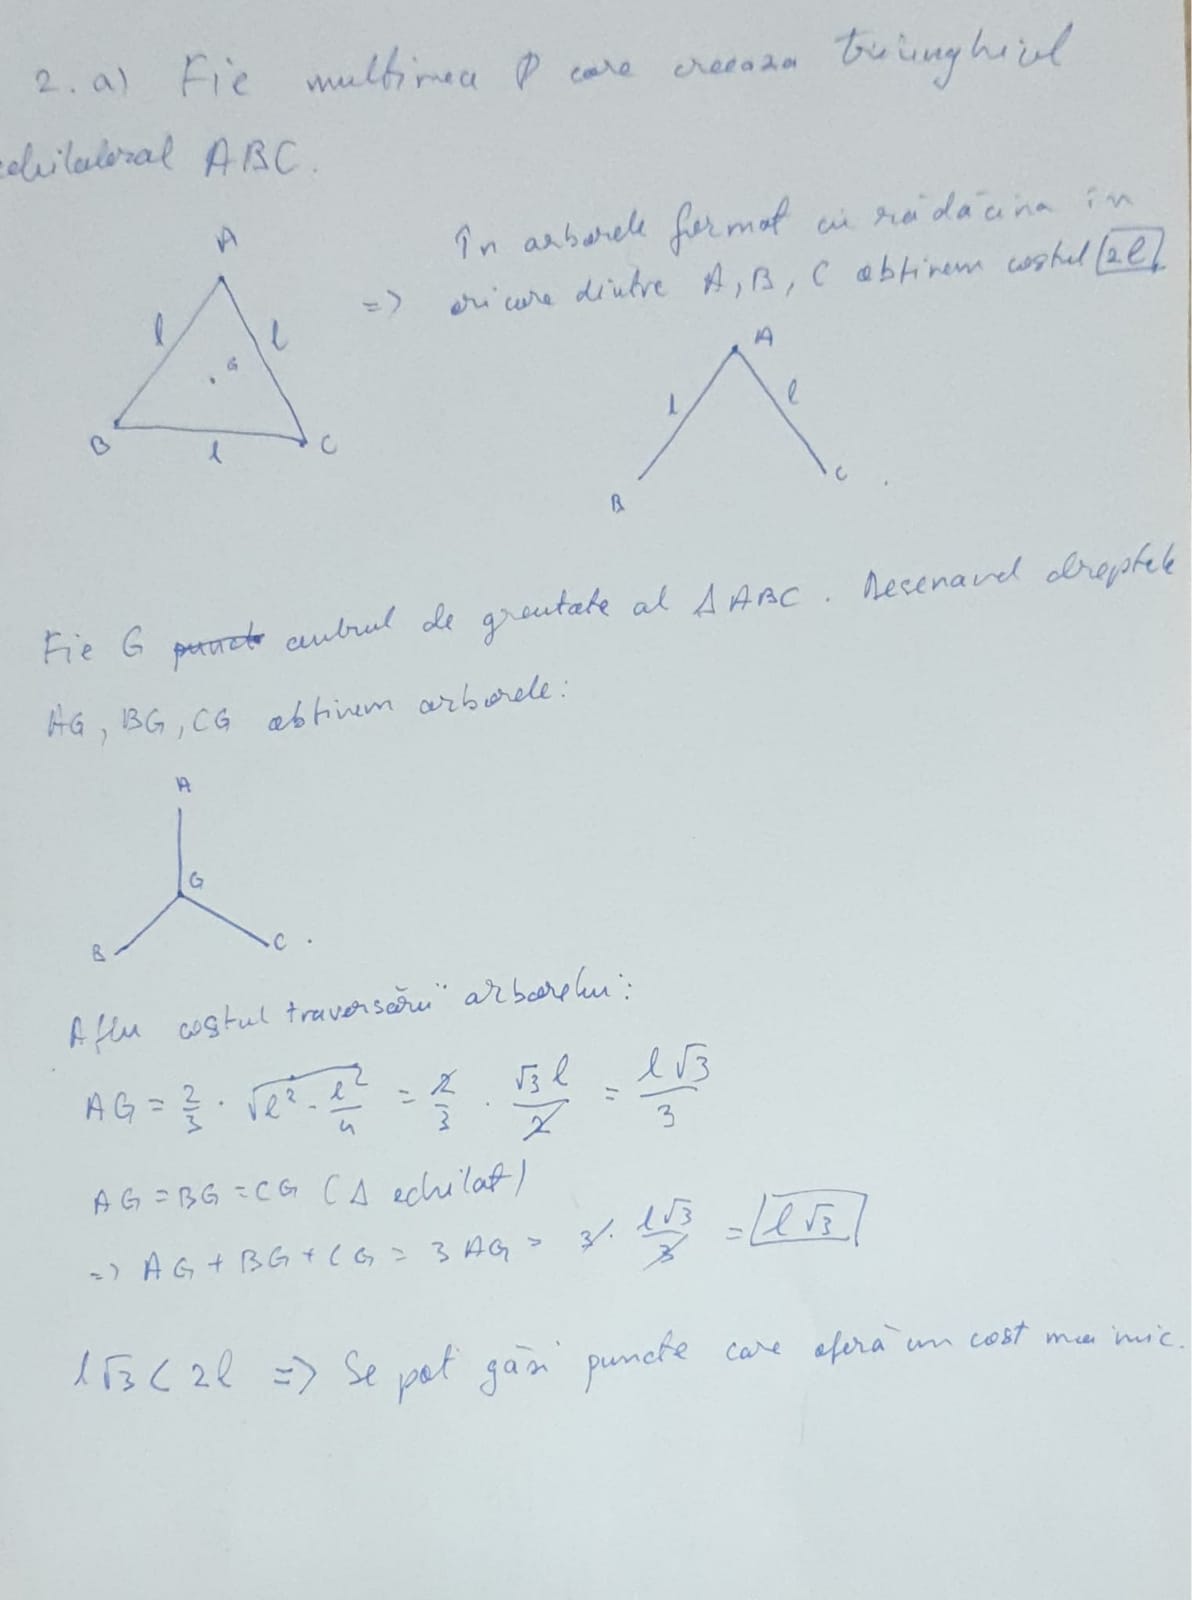 2. a) Fie multimea P care creeaza triunghiul
echilateral ABC.
A
l
l
G
B
l
C
=>
În arborele format cu rădăcina în
oricare dintre A, B, C obtinem costul 2l
A
l
l
B
C
Fie G punct centrul de greutate al Δ ABC. Desenand dreptele
AG, BG, CG obtinem arborele:
A
G
B
C.
Aflu costul traversării arborelui:
AG = 2/3 · √(l² - l²/4) = 2/3 · √3 l/2 = l√3/3
AG = BG = CG (Δ echilat)
=> AG + BG + CG = 3 AG = 3 · l√3/3 = l√3
l√3 < 2l => Se pot găsi puncte care oferă un cost mai mic.